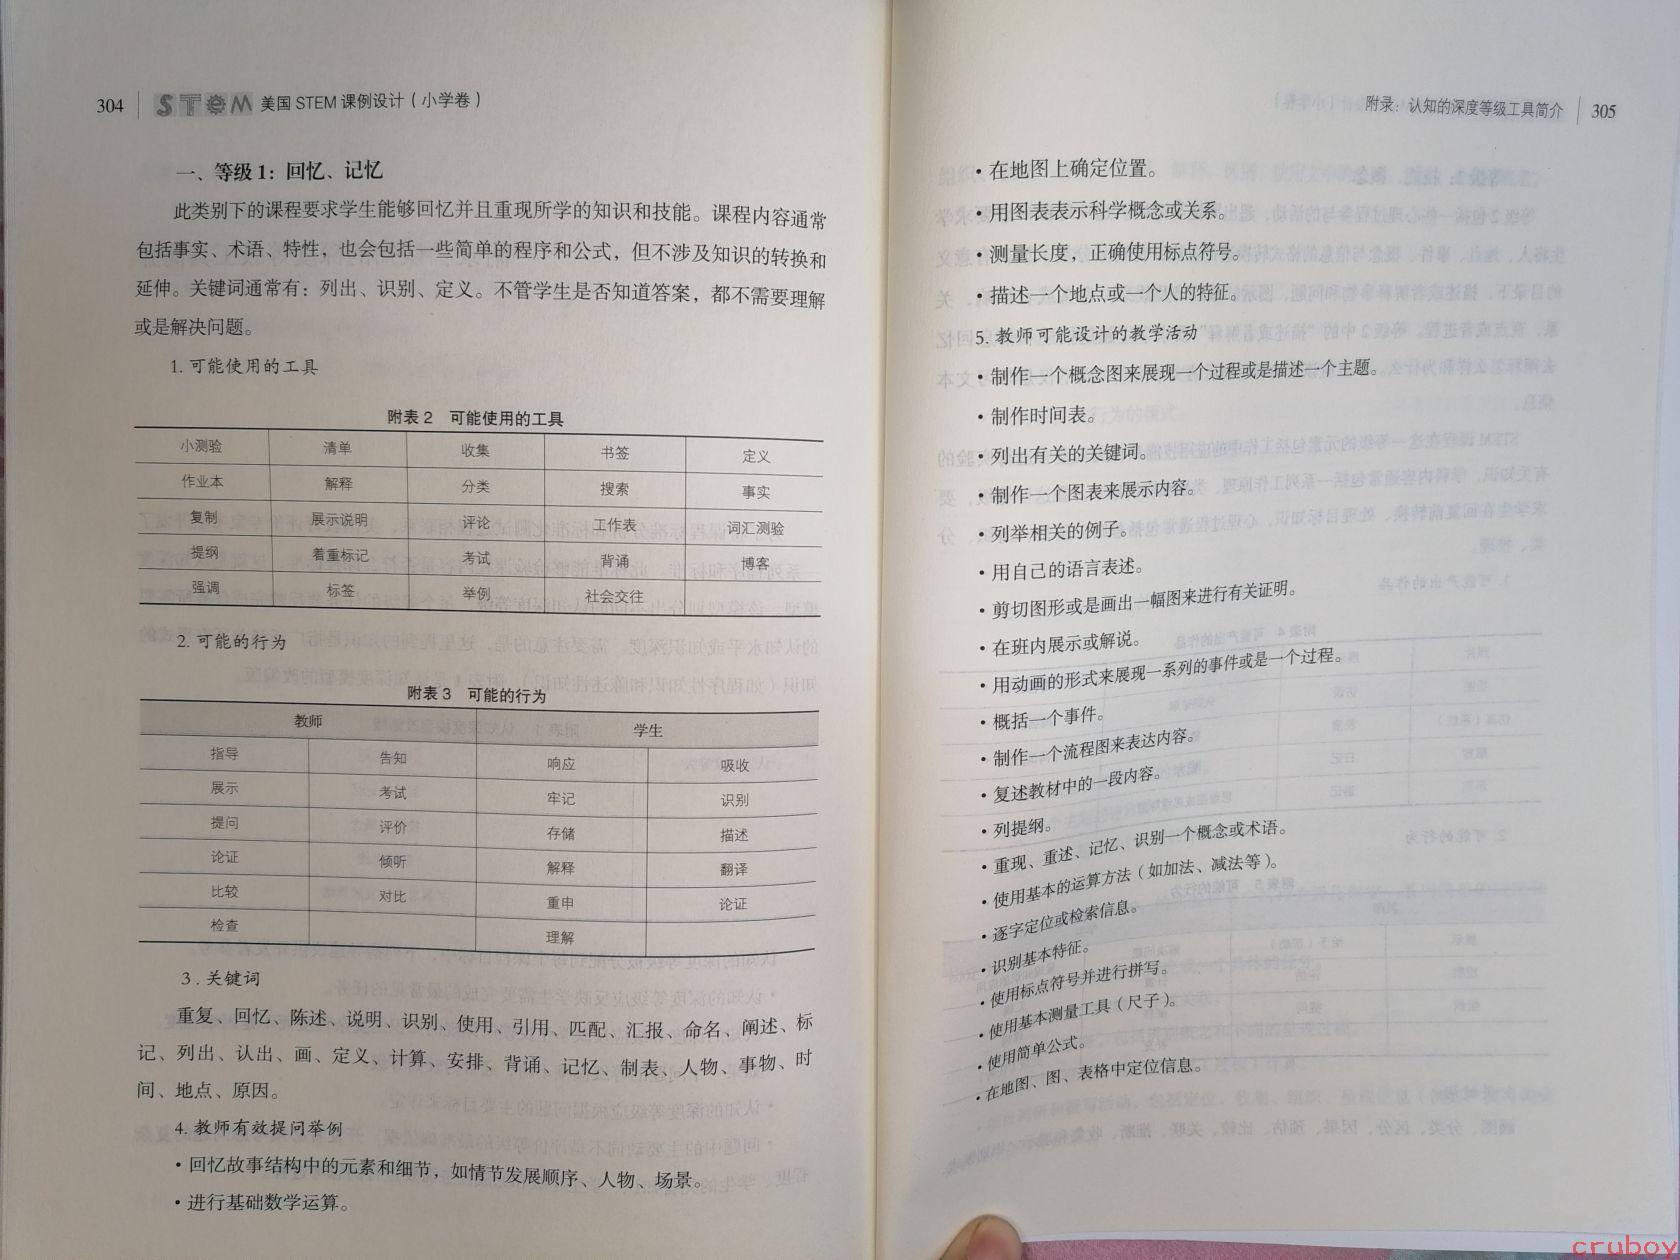 304 STEM 美国 STEM 课例设计（小学卷）
一、等级 1：回忆、记忆
此类别下的课程要求学生能够回忆并且重现所学的知识和技能。课程内容通常
包括事实、术语、特性，也会包括一些简单的程序和公式，但不涉及知识的转换和
延伸。关键词通常有：列出、识别、定义。不管学生是否知道答案，都不需要理解
或是解决问题。
1. 可能使用的工具
附表 2 可能使用的工具
小测验 清单 收集 书签 定义
作业本 解释 分类 搜索 事实
复制 展示说明 评论 工作表 词汇测验
提纲 着重标记 考试 背诵 博客
强调 标签 举例 社会交往
2. 可能的行为
附表 3 可能的行为
教师 学生
指导 告知 响应 吸收
展示 考试 牢记 识别
提问 评价 存储 描述
论证 倾听 解释 翻译
比较 对比 重申 论证
检查 理解
3. 关键词
重复、回忆、陈述、说明、识别、使用、引用、匹配、汇报、命名、阐述、标
记、列出、认出、画、定义、计算、安排、背诵、记忆、制表、人物、事物、时
间、地点、原因。
4. 教师有效提问举例
· 回忆故事结构中的元素和细节，如情节发展顺序、人物、场景。
· 进行基础数学运算。
附录：认知的深度等级工具简介 305
· 在地图上确定位置。
· 用图表表示科学概念或关系。
· 测量长度，正确使用标点符号。
· 描述一个地点或一个人的特征。
5. 教师可能设计的教学活动
· 制作一个概念图来展现一个过程或是描述一个主题。
· 制作时间表。
· 列出有关的关键词。
· 制作一个图表来展示内容。
· 列举相关的例子。
· 用自己的语言表述。
· 剪切图形或是画出一幅图来进行有关证明。
· 在班内展示或解说。
· 用动画的形式来展现一系列的事件或是一个过程。
· 概括一个事件。
· 制作一个流程图来表达内容。
· 复述教材中的一段内容。
· 列提纲。
· 重现、重述、记忆、识别一个概念或术语。
· 使用基本的运算方法（如加法、减法等）。
· 逐字定位或检索信息。
· 识别基本特征。
· 使用标点符号并进行拼写。
· 使用基本测量工具（尺子）。
· 使用简单公式。
· 在地图、图、表格中定位信息。
cruboy